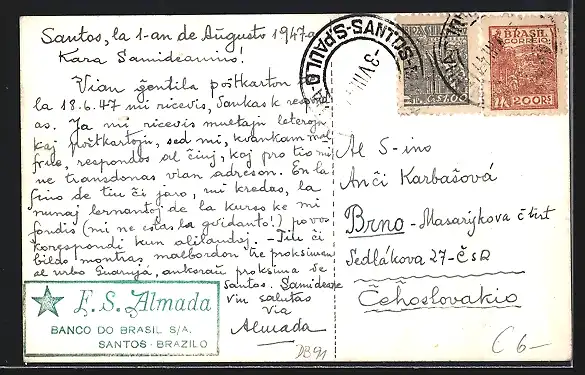 Santos, la 1-an de Aŭgusto 1947a
Kara Samideanino!
Vian ĝentila poŝtkarton
la 18.6.47 mi ricevis, dankas k respond
as. Ja mi ricevis multajn leterojn
kaj poŝtkartojn, sed mi, kvankam mal
frue, respondos al ĉiuj, kaj pro tio mi
ne transdonas vian adreson. En la
fino de tiu ĉi jaro, mi kredas, la
nunaj lernantoj de la kurso ke mi
fondis (mi ne estas la gvidanto!) povos
korespondi kun alilandoj. - Tiu ĉi
bildo montras malbordon tre proksiman
al urbo Guarujá, ankoraŭ proksima de
Santos. Samideane
vin salutas
via
Almada
F. S. Almada
BANCO DO BRASIL S/A.
SANTOS - BRAZILO
DB91
SANTOS-S.PAULO
3 VIII
BRASIL
BRASIL
CORREIO
200RS
Al S-ino
Anĉi Karbašová
Brno - Masarykova čtvrt
Sedlákova 27 - ČSR
Ĉeĥoslovakio
C 6-